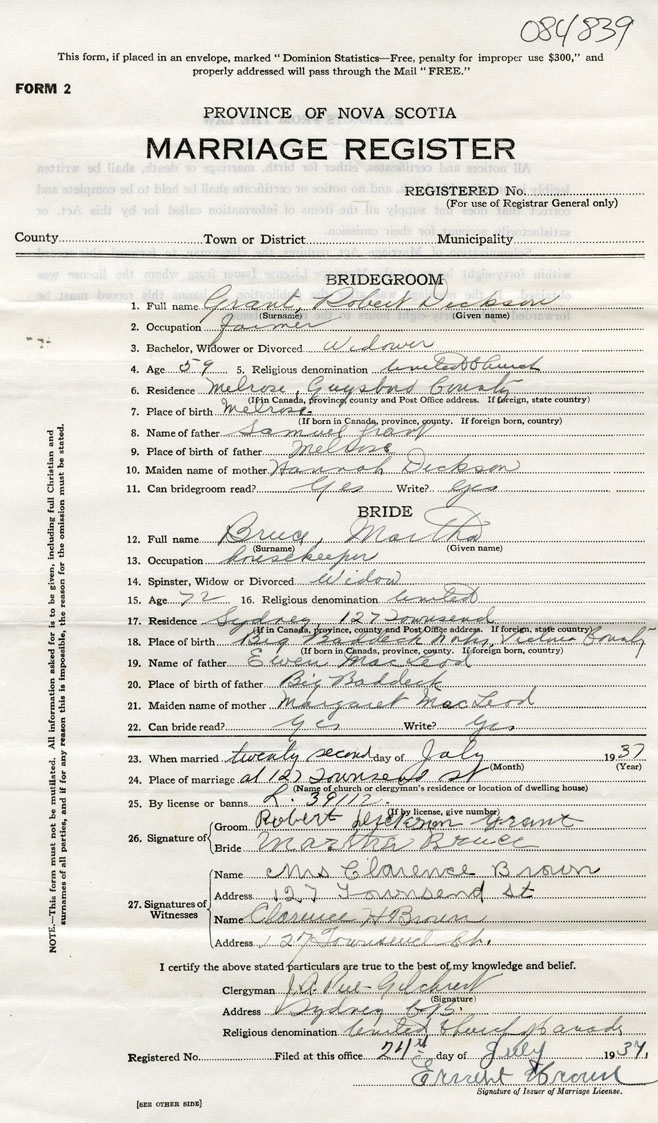 084839
This form, if placed in an envelope, marked "Dominion Statistics—Free, penalty for improper use $300," and
properly addressed will pass through the Mail "FREE."
FORM 2
PROVINCE OF NOVA SCOTIA
MARRIAGE REGISTER
REGISTERED No.
(For use of Registrar General only)
County Town or District Municipality
BRIDEGROOM
1. Full name Grant, Robert Dickson
(Surname) (Given name)
2. Occupation farmer
3. Bachelor, Widower or Divorced Widower
4. Age 59 5. Religious denomination United Church
6. Residence Melrose, Guysboro County
(If in Canada, province, county and Post Office address. If foreign, state country)
7. Place of birth Melrose
(If born in Canada, province, county. If foreign born, country)
8. Name of father Samuel Grant
9. Place of birth of father Melrose
10. Maiden name of mother Hannah Dickson
11. Can bridegroom read? Yes Write? Yes
BRIDE
12. Full name Bruce, Martha
(Surname) (Given name)
13. Occupation housekeeper
14. Spinster, Widow or Divorced Widow
15. Age 72 16. Religious denomination United
17. Residence Sydney, 127 Townsend
(If in Canada, province, county and Post Office address. If foreign, state country)
18. Place of birth Big Baddeck Victoria County
(If born in Canada, province, county. If foreign born, country)
19. Name of father Ewen MacLeod
20. Place of birth of father Big Baddeck
21. Maiden name of mother Margaret MacLeod
22. Can bride read? Yes Write? Yes
23. When married twenty second day of July 1937
(Month) (Year)
24. Place of marriage at 127 Townsend st
(Name of church or clergyman's residence or location of dwelling house)
25. By license or banns L. 39112.
(If by license, give number)
26. Signature of
Groom Robert Dickson Grant
Bride Martha Bruce
27. Signatures of Witnesses
Name Mrs Clarence Brown
Address 127 Townsend st
Name Clarence H Brown
Address 127 Townsend St.
I certify the above stated particulars are true to the best of my knowledge and belief.
Clergyman J. A. Gilchrist
(Signature)
Address Sydney C.B.
Religious denomination United Church Canada
Registered No. Filed at this office 24th day of July 1937,
Ernest Brown
Signature of Issuer of Marriage License.
[SEE OTHER SIDE]
NOTE.—This form must not be mutilated. All information asked for is to be given, including full Christian and
surnames of all parties, and if for any reason this is impossible, the reason for the omission must be stated.